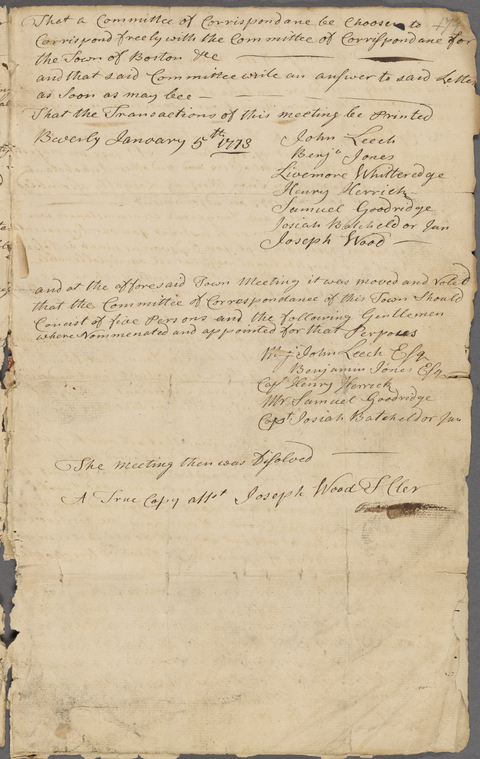 That a Committee of Corrispondane be Choosen to
Corrispond freely with the Committee of Corrispondane for
the Town of Boston &c
and that said Committee write an answer to said Letter
as soon as may bee
That the Transactions of this meeting be Printed
Beverly January 5th 1773
John Leech
Benja Jones
Livemore Whitteredge
Henry Herrick
Samuel Goodridge
Josiah Batcheldor Jun
Joseph Wood
and at the afforesaid Town Meeting it was moved and Voted
that the Committee of Correspondance of this Town Should
Concist of five Persons and the following Gentlemen
where Nommenated and appointed for that Perpoues
John Leech Esq
Benjamin Jones Esq
Capt Henry Herrick
Mr Samuel Goodridge
Capt Josiah Batcheldor Jun
The meeting then was Disolved
A True Copy attst Joseph Wood T Cler